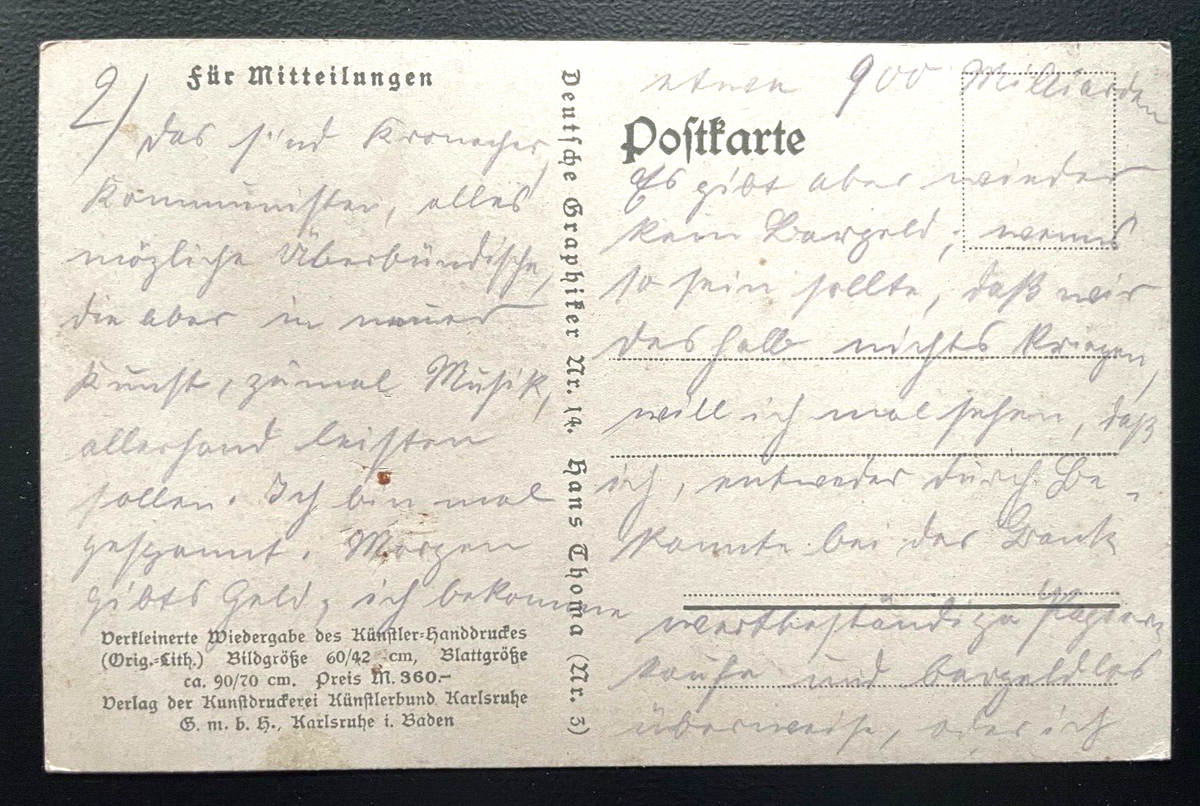 2)
Für Mitteilungen
Das sind Kronacher,
Kommunisten, alles
mögliche Überbündische,
die aber in neuer
Kunst, zumal Musik,
allerhand leisten
sollen. Ich bin mal
gespannt. Morgen
gibts Geld; ich bekomme
Verkleinerte Wiedergabe des Künstler-Handdruckes
(Orig.-Lith.) Bildgröße 60/42 cm, Blattgröße
ca. 90/70 cm. Preis M. 360.–
Verlag der Kunstdruckerei Künstlerbund Karlsruhe
G. m. b. H., Karlsruhe i. Baden
Deutsche Graphiker Nr. 14. Hans Thoma (Nr. 3)
etwa 900 Milliarden
Postkarte
Es gibt aber wieder
kein Bargeld; wenns
so sein sollte, daß wir
deshalb nichts kriegen,
will ich mal sehen, daß
ich, entweder durch Be-
kannte bei der Bank
wertbeständige Papiere
kaufe und bargeldlos
überweise, oder ich